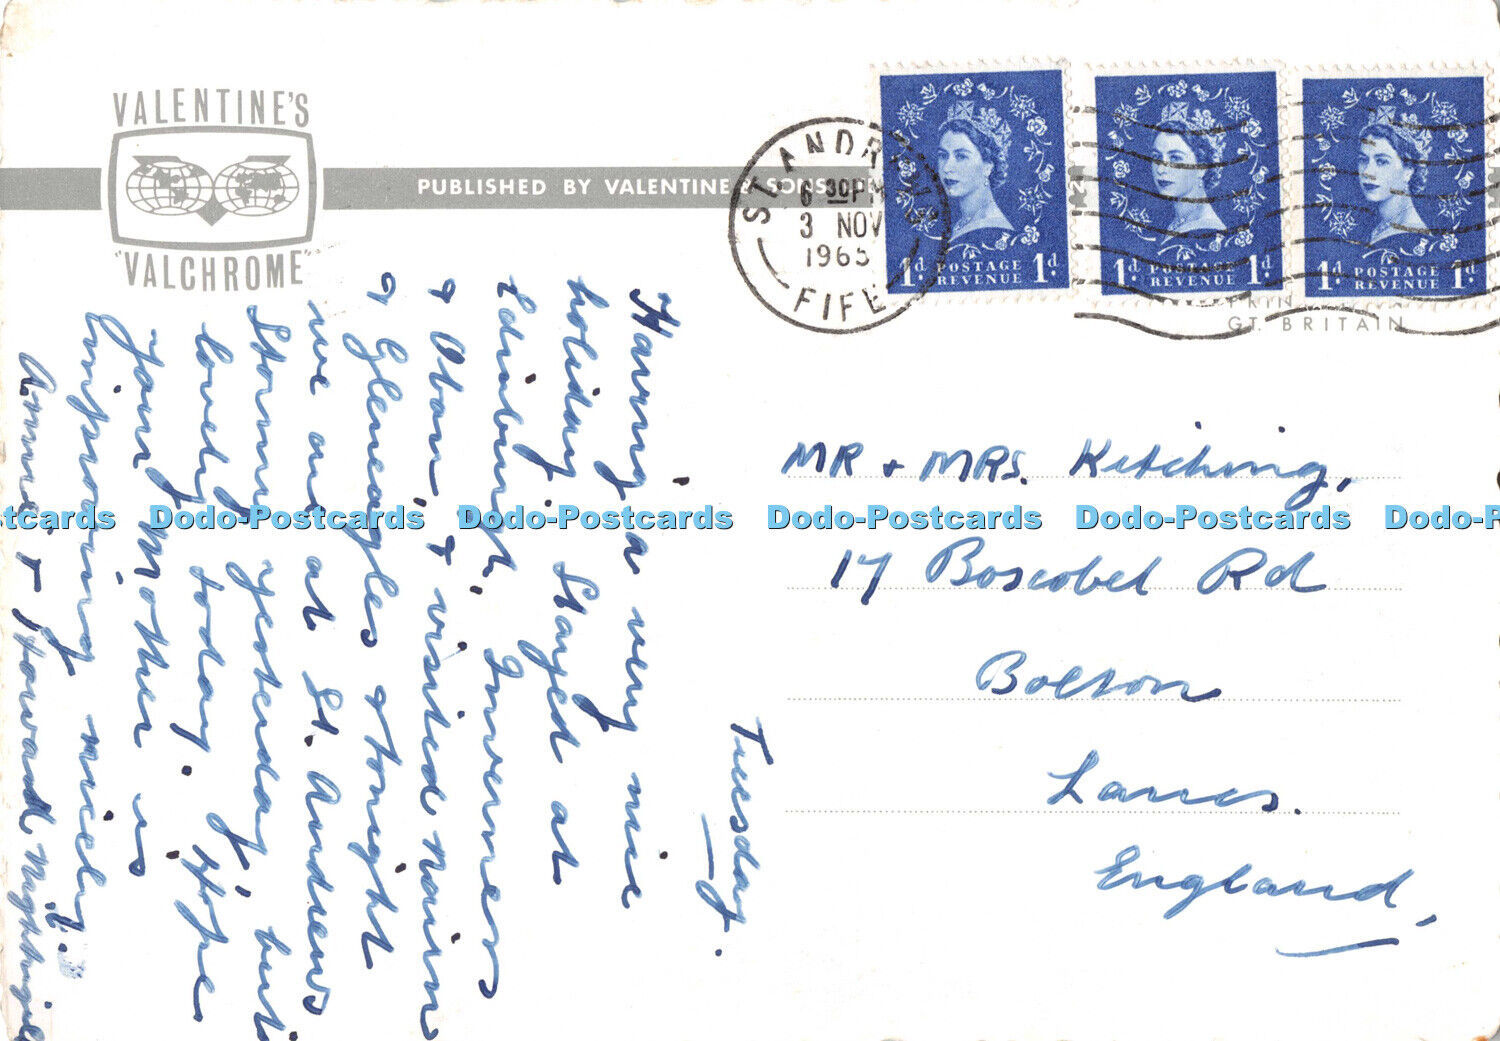 VALENTINE'S
"VALCHROME"
PUBLISHED BY VALENTINE & SONS
ST. ANDREWS
6 30PM
3 NOV
1965
FIFE
1d POSTAGE REVENUE 1d
1d POSTAGE REVENUE 1d
1d POSTAGE REVENUE 1d
GT. BRITAIN
Tuesday.
Having a very nice
holiday. Stayed at
Edinburgh, Inverness
& Oban, & visited Nairn
& Gleneagles & tonight
we are at St. Andrews
Stormy yesterday, but
lovely today. Hope
your Mother is
improving nicely.
Annie & Howard Nightingale
MR + MRS. Kitching,
17 Boscobel Rd
Bolton
Lancs.
England,
Dodo-Postcards Dodo-Postcards Dodo-Postcards Dodo-Postcards